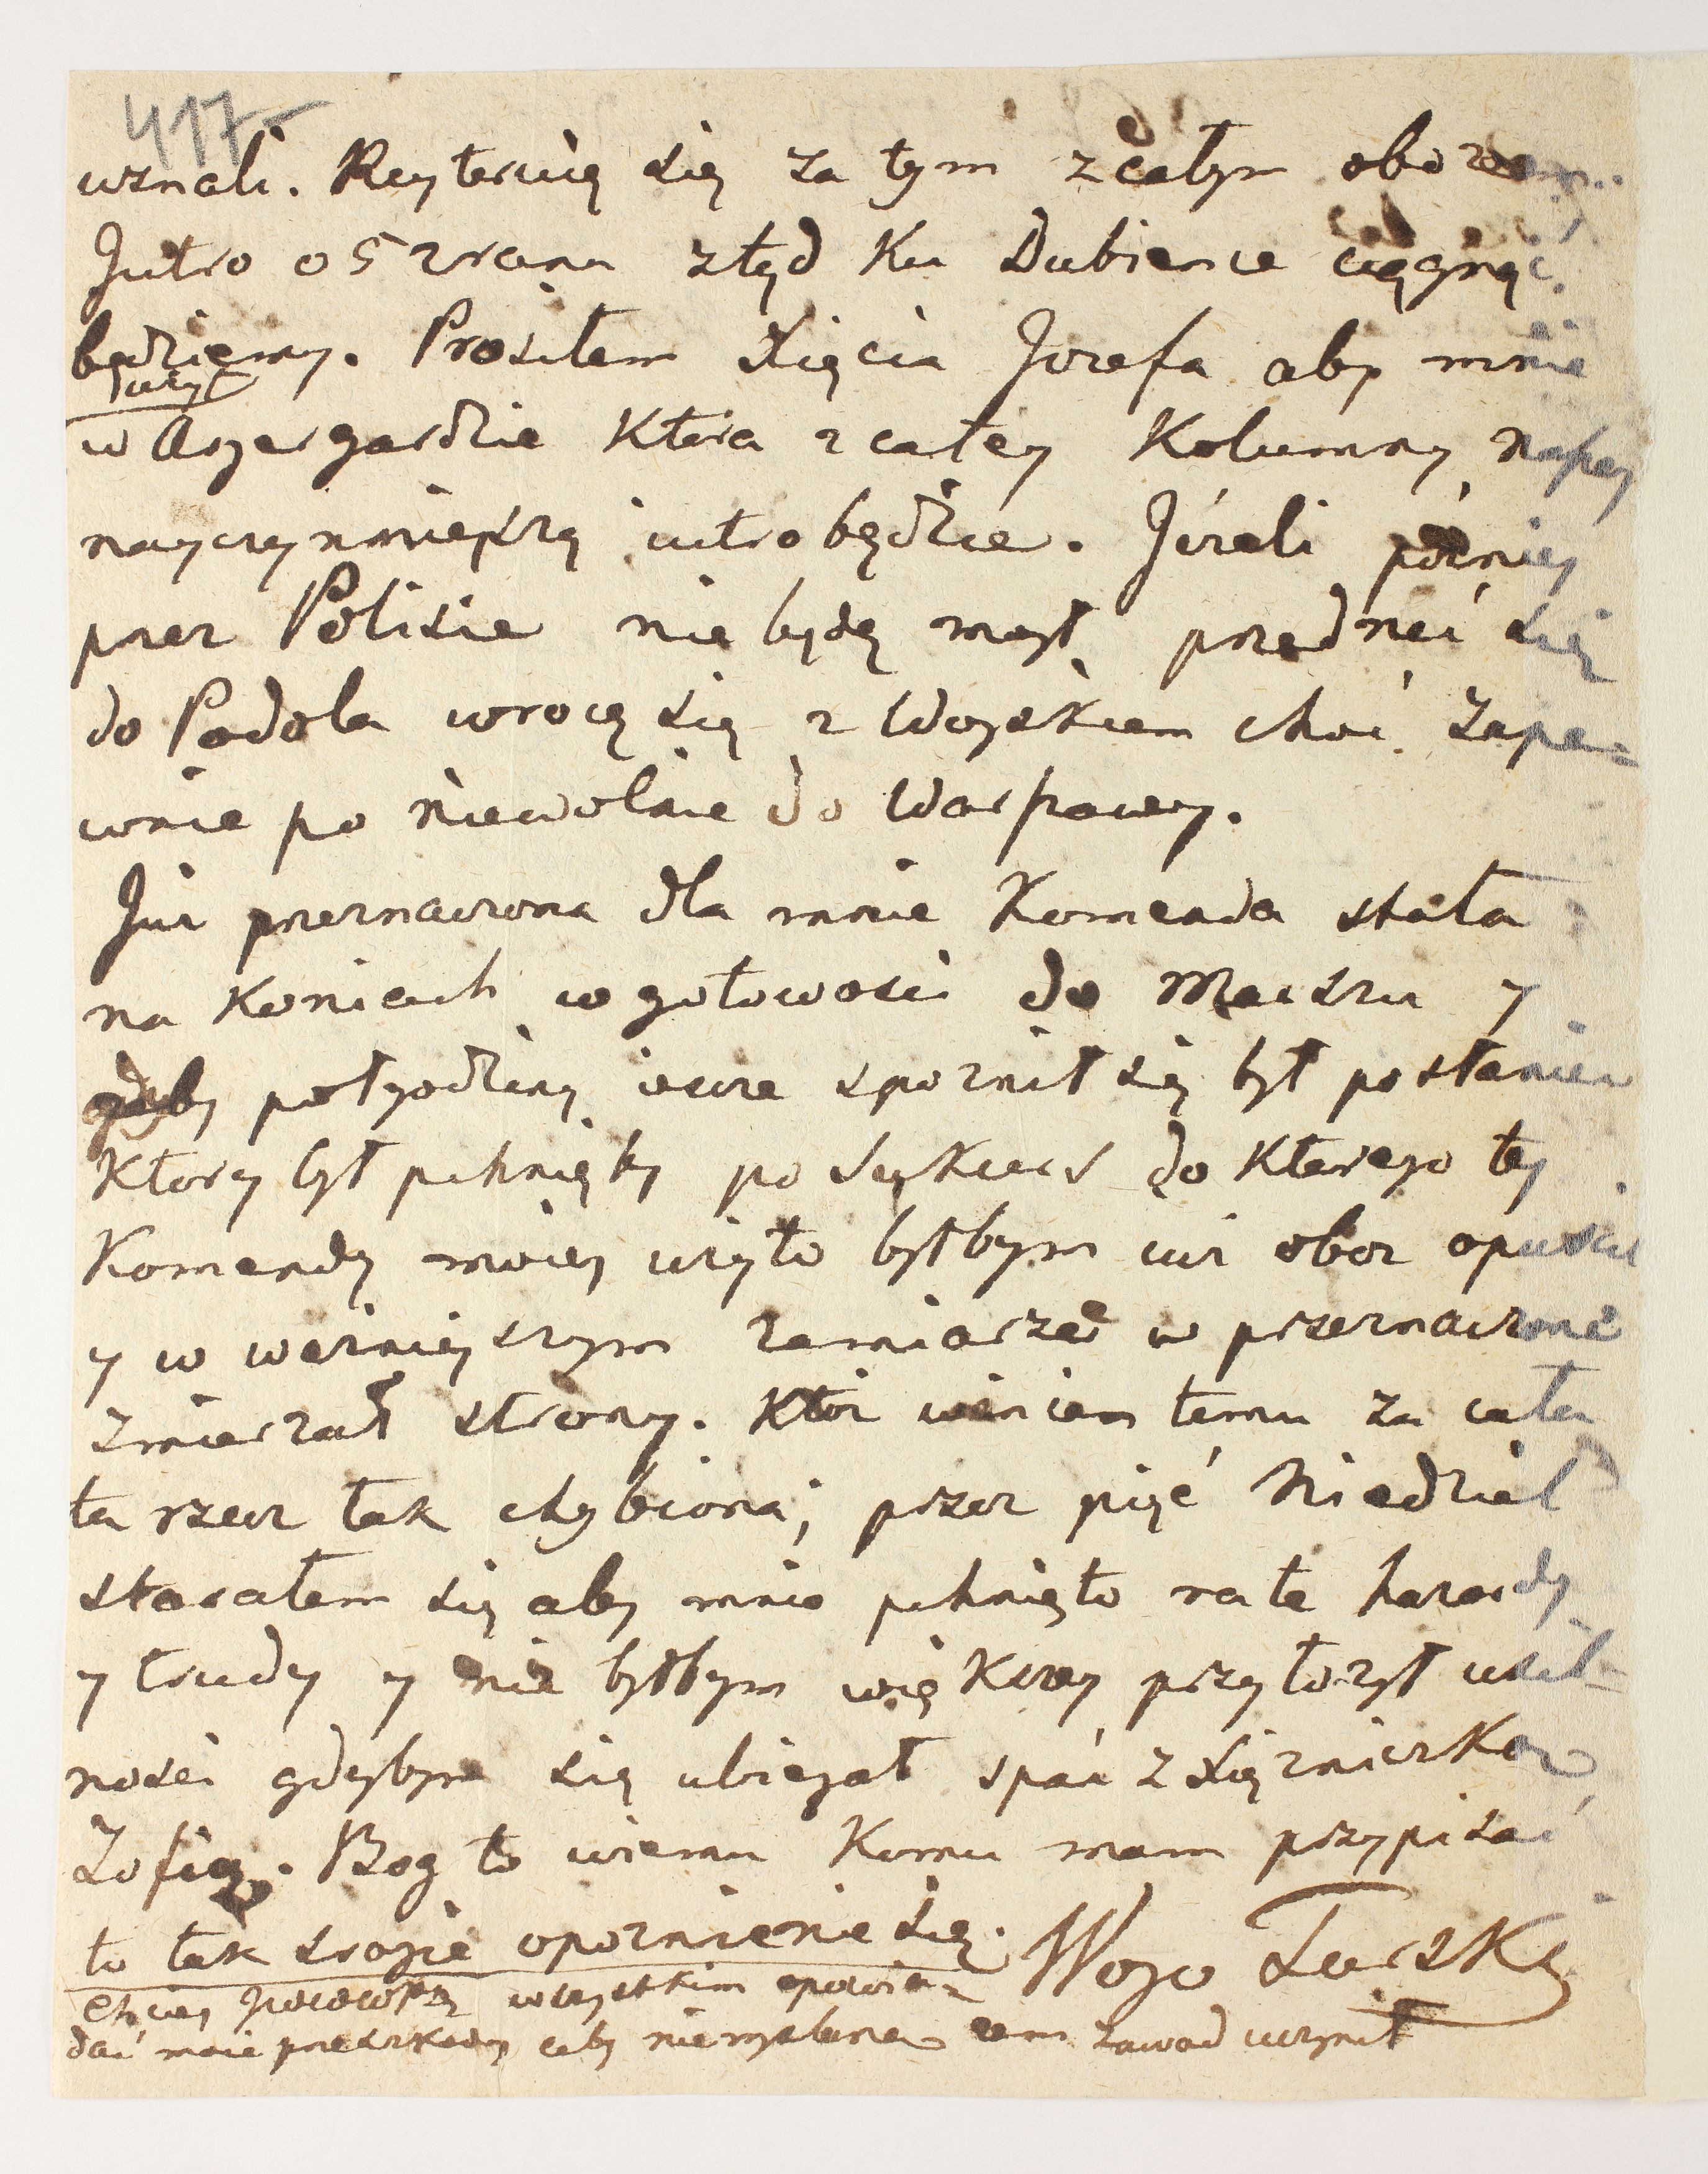 417
uznali. Reyteruię się za tym z całym obozem.
Jutro o 5 zrana ztąd Ku Dubience ciągnąć
będziemy. Prosiłem Xięcia Jozefa aby mnie
użył
w Aryergardzie Ktora z całey Kolumny naszey
nayczynnieyszą iutro będzie. Jeżeli pózniey
przez Polisie nie będę mogł przedrzeć się
do Podola wrocę się z Woyskiem choć zape=
wnie po niewolnie do Warszawy.
Już przeznaczona dla mnie Komenda stała
na Koniach w gotowosci do Marszu y
gdyby połgodziny ieszcze spoznił się był posłaniec
Ktory był pchnięty po sukurs do Ktorego tey
Komendy moiey użyto byłbym iuż oboz opuscił
y w ważnieyszym zamiarze w przeznaczone
zmierzał strony. Ktoż winien temu za cała
ta rzecz tak chybiona; przez pięć Niedziel
starałem się aby mnie pchnięto na te hazardy
y trudy y nie byłbym większey przyłożył usil=
nosci gdybym się ubiegał spać z Xiężniczką
Zofią. Bog to wiemu Komu mam przypisać
to tak srogie opoznienie się. Woyo Turski
Chciey Jwowskę wszystkim opowie=
dać moie przeszkody aby niemyslano zem zawod uczynił